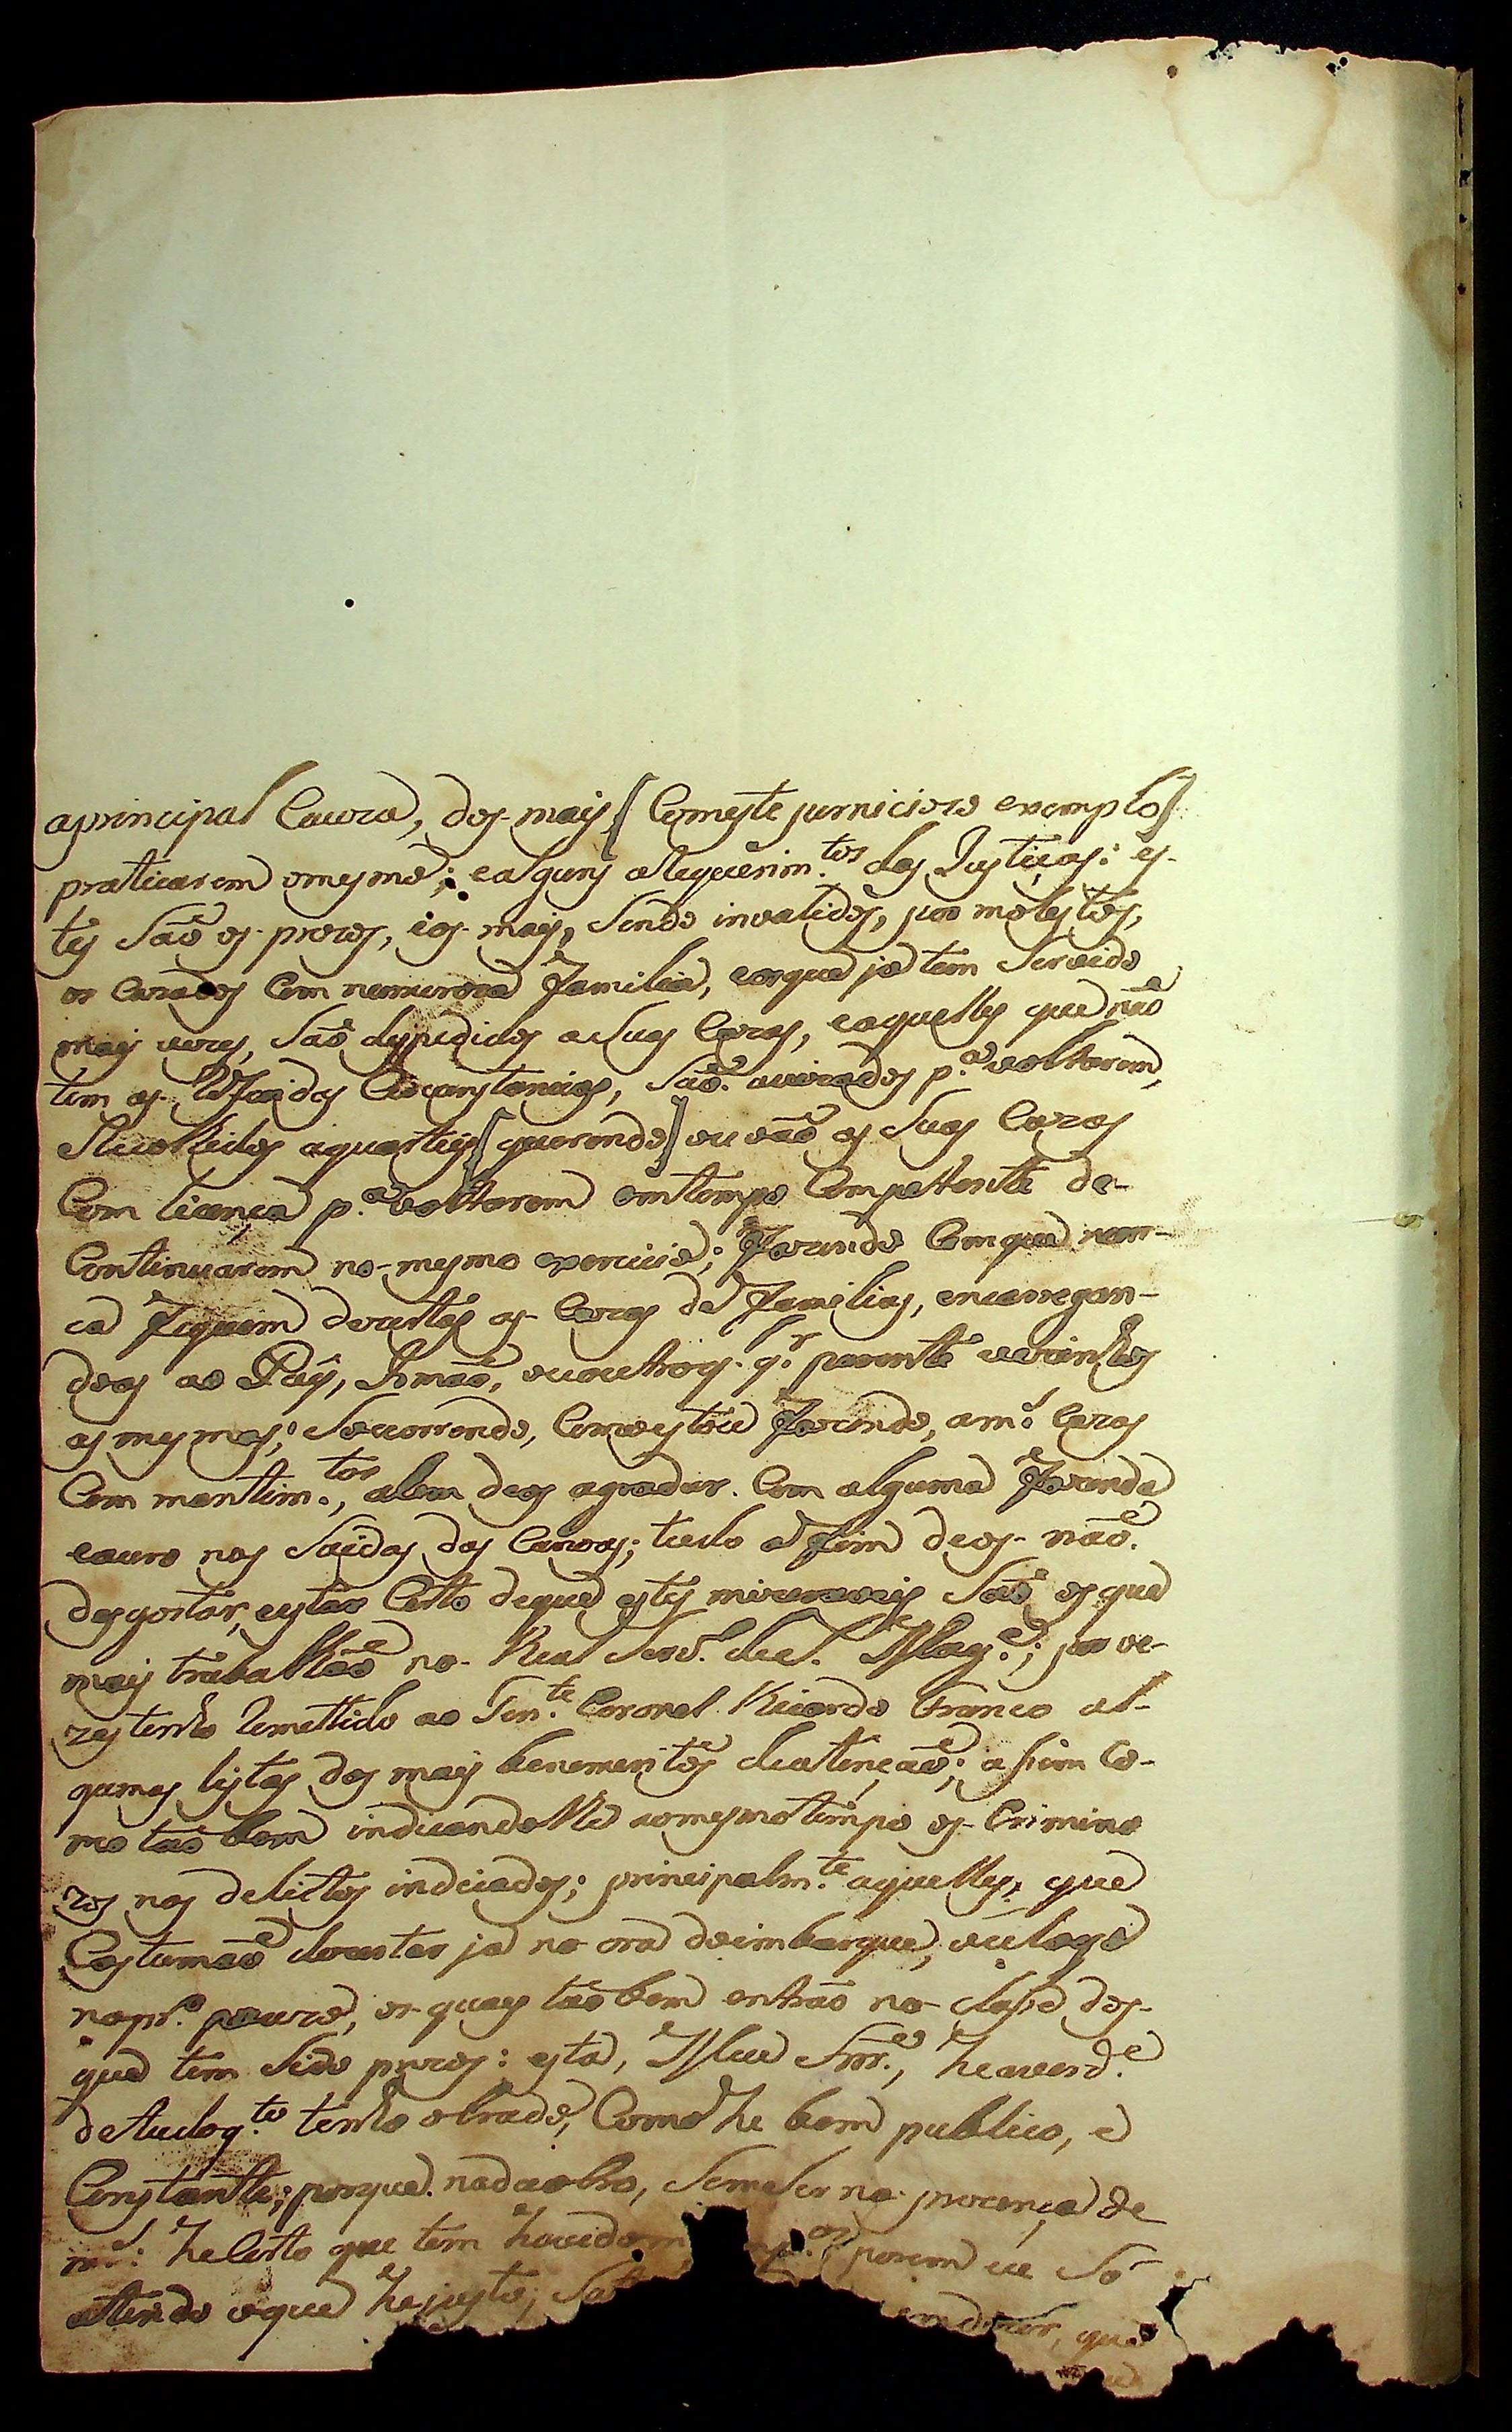 aprincipal Cauza, dos mais [Comeste perniciozo exemplo]
praticarem omesmo; ealguns aRequerim.tos das Justiças: es-
tes Saõ os prezos, eos mais, Sendo invalidos, por molestos,
os Cazados Com numeroza Familia, eosque ja tem Servido
mais vezes, Saõ despedidos aSuas Cazas, eaquelles que naõ
tem as Referidas Circunstancias, Saõ avizados p.a voltarem,
eRecolhidos aquarteis [querendo] ou vaõ as Suas Cazas
Com licença p.a voltarem emtempo Competente de-
Continuarem no mesmo exercicio; Fazendo Comque nun-
ca Fiquem dezertas as Cazas de Familias, encarregan-
doas ao Pay, Irmaõ, ououtros q.l r parente vezinhos
as mesmas; Socorrendo, Comoestou Fazendo, am.s Cazas
Com mantim.tos, alem deos agradar Com alguma Fazenda,
eouro nas Saidas das Canoas; tudo aFim deos naõ
desgostar, eestar Certo deque estes mizeraveis Saõ os que
mais trabalhaõ no Real Serv.o de S. Mag.e; por ve-
zes tenho Remettido ao Ten.te Coronel Ricardo Franco al-
gumas listas dos mais benemeritos deatençaõ; asim Co-
mo taõbem indicandolhe aomesmotempo os Crimino
zos nos delictos indiciados; principalm.te aquelles, que
Costumaõ dezertar ja na ora doimbarque, oulogo
nopr.o pouzo, os quaes taõbem entraõ na classe dos
que tem Sido prezos: esta, Illm.o Snr., he averd.e
deTudoq.to tenho obrado, Como he bem publico, e
Constante; porque nadaobro, Semser na prezença de
m.s: heCerto que tem havido porem eu So
attendo oque hejusto; que